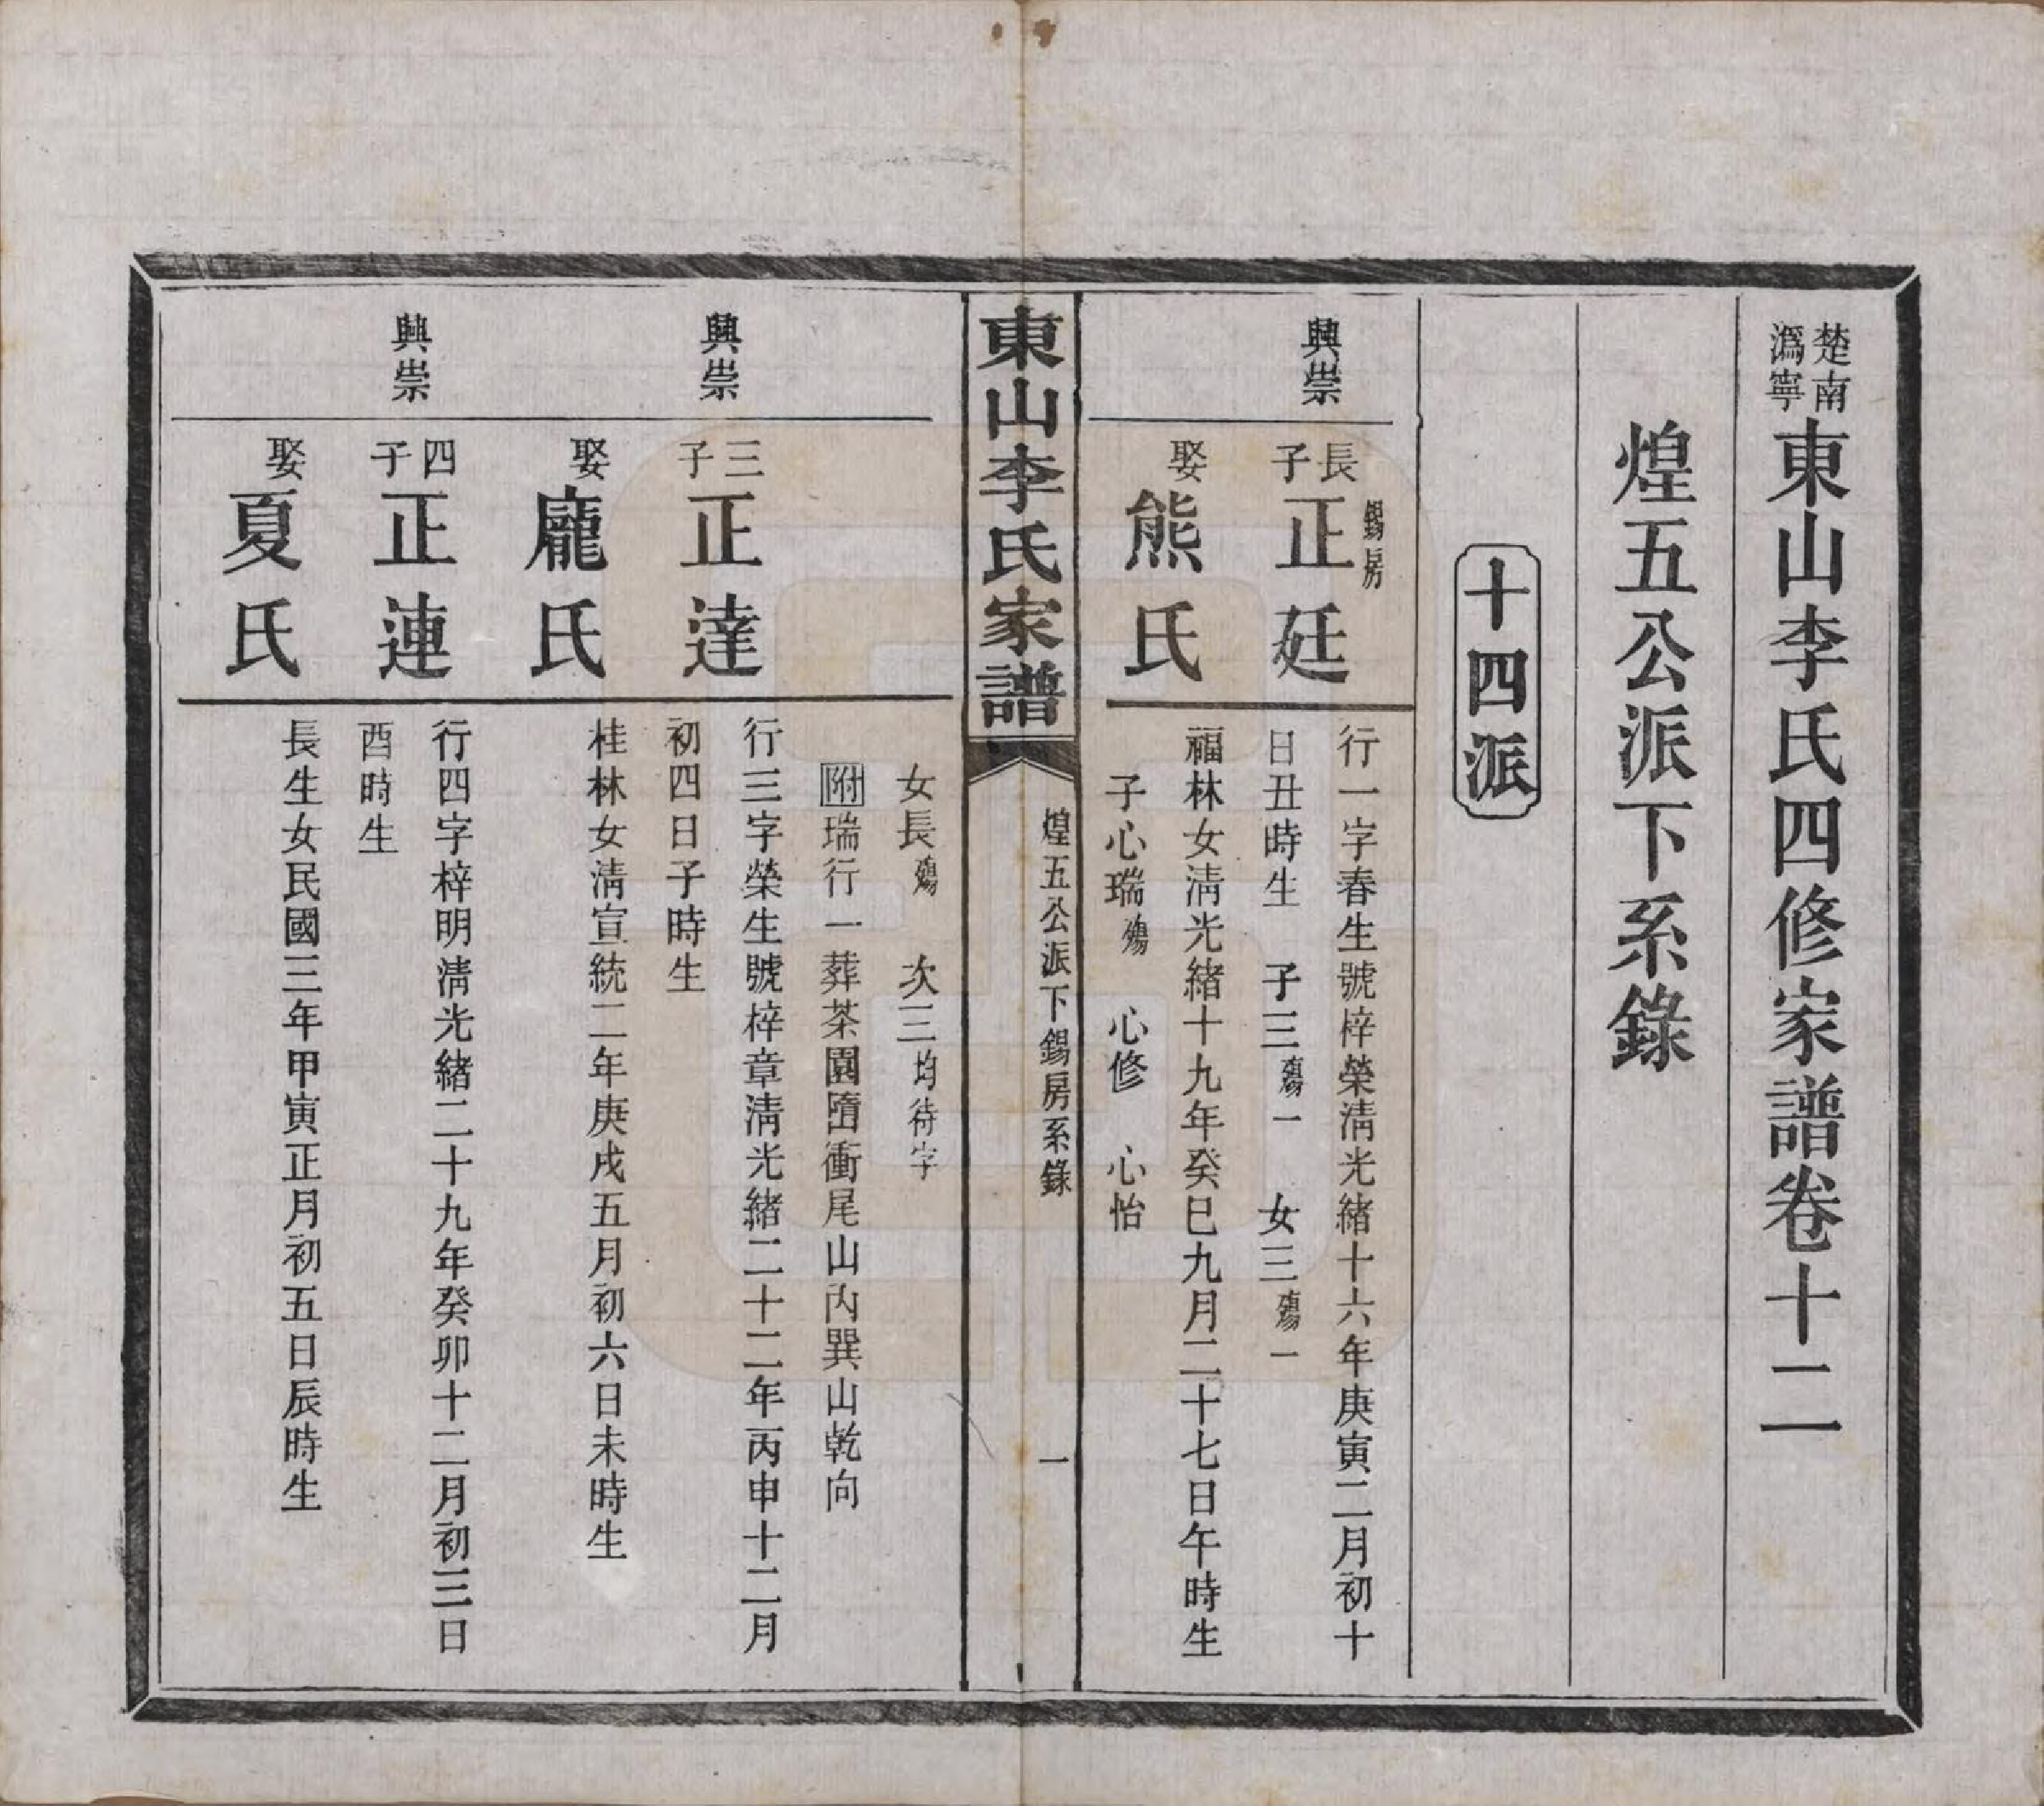 楚南
溈寧
東山李氏四修家譜卷十二
煌五公派下系錄
十四派
興崇
長子
正廷
錫房
行一字春生號梓榮淸光緖十六年庚寅二月初十
日丑時生 子三殤一 女三殤一
娶
熊氏
福林女淸光緖十九年癸巳九月二十七日午時生
子心瑞殤 心修 心怡
東山李氏家譜
煌五公派下錫房系錄
一
女長殤 次三均待字
附瑞行一葬茶園𡐦衝尾山內巽山乾向
興崇
三子
正達
行三字榮生號梓章淸光緖二十二年丙申十二月
初四日子時生
娶
龐氏
桂林女淸宣統二年庚戌五月初六日未時生
興崇
四子
正連
行四字梓明淸光緖二十九年癸卯十二月初三日
酉時生
娶
夏氏
長生女民國三年甲寅正月初五日辰時生